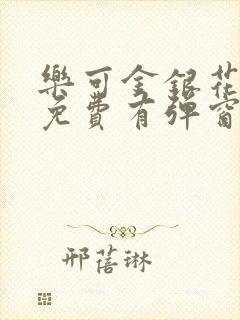 樂可金銀花
免費有彈窗
邢蓓琳